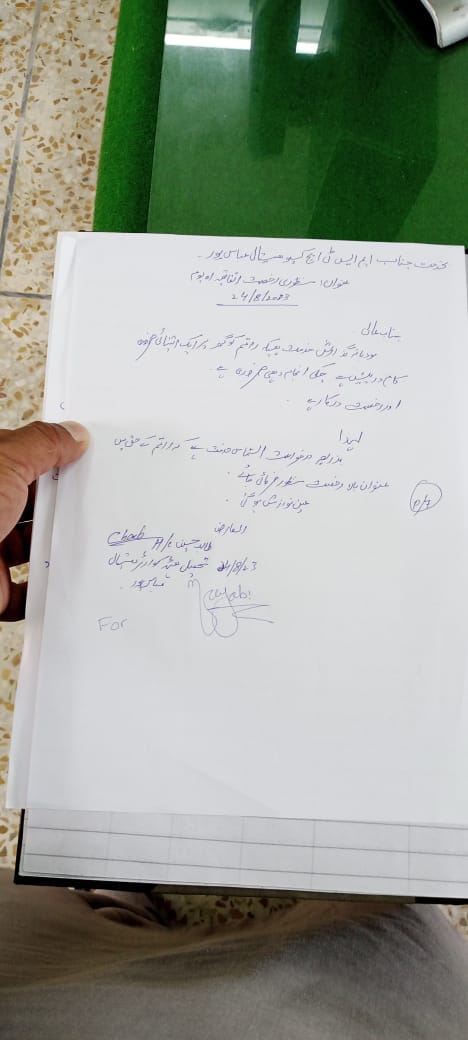 بخدمت جناب ایم ایس ٹی ایچ کیو ہسپتال عباس پور۔
عنوان: منظوری رخصت اتفاقیہ یوم
24/8/2023
جناب عالی
مودبانہ گذارش خدمت ہیکہ راقم کو گھر پر ایک انتہائی ضروری
کام درپیش ہے جسکی انجام دہی ضروری ہے۔
اور رخصت درکار ہے۔
لہذا
بذریعہ درخواست التماس خدمت ہے کہ راقم کے حق میں
عنوان بالا رخصت منظور فرمائی جائے۔
عین نوازش ہوگی۔
العارض
حسین
تحصیل ہیڈ کوارٹر ہسپتال
عباس پور۔
24/8/23
For